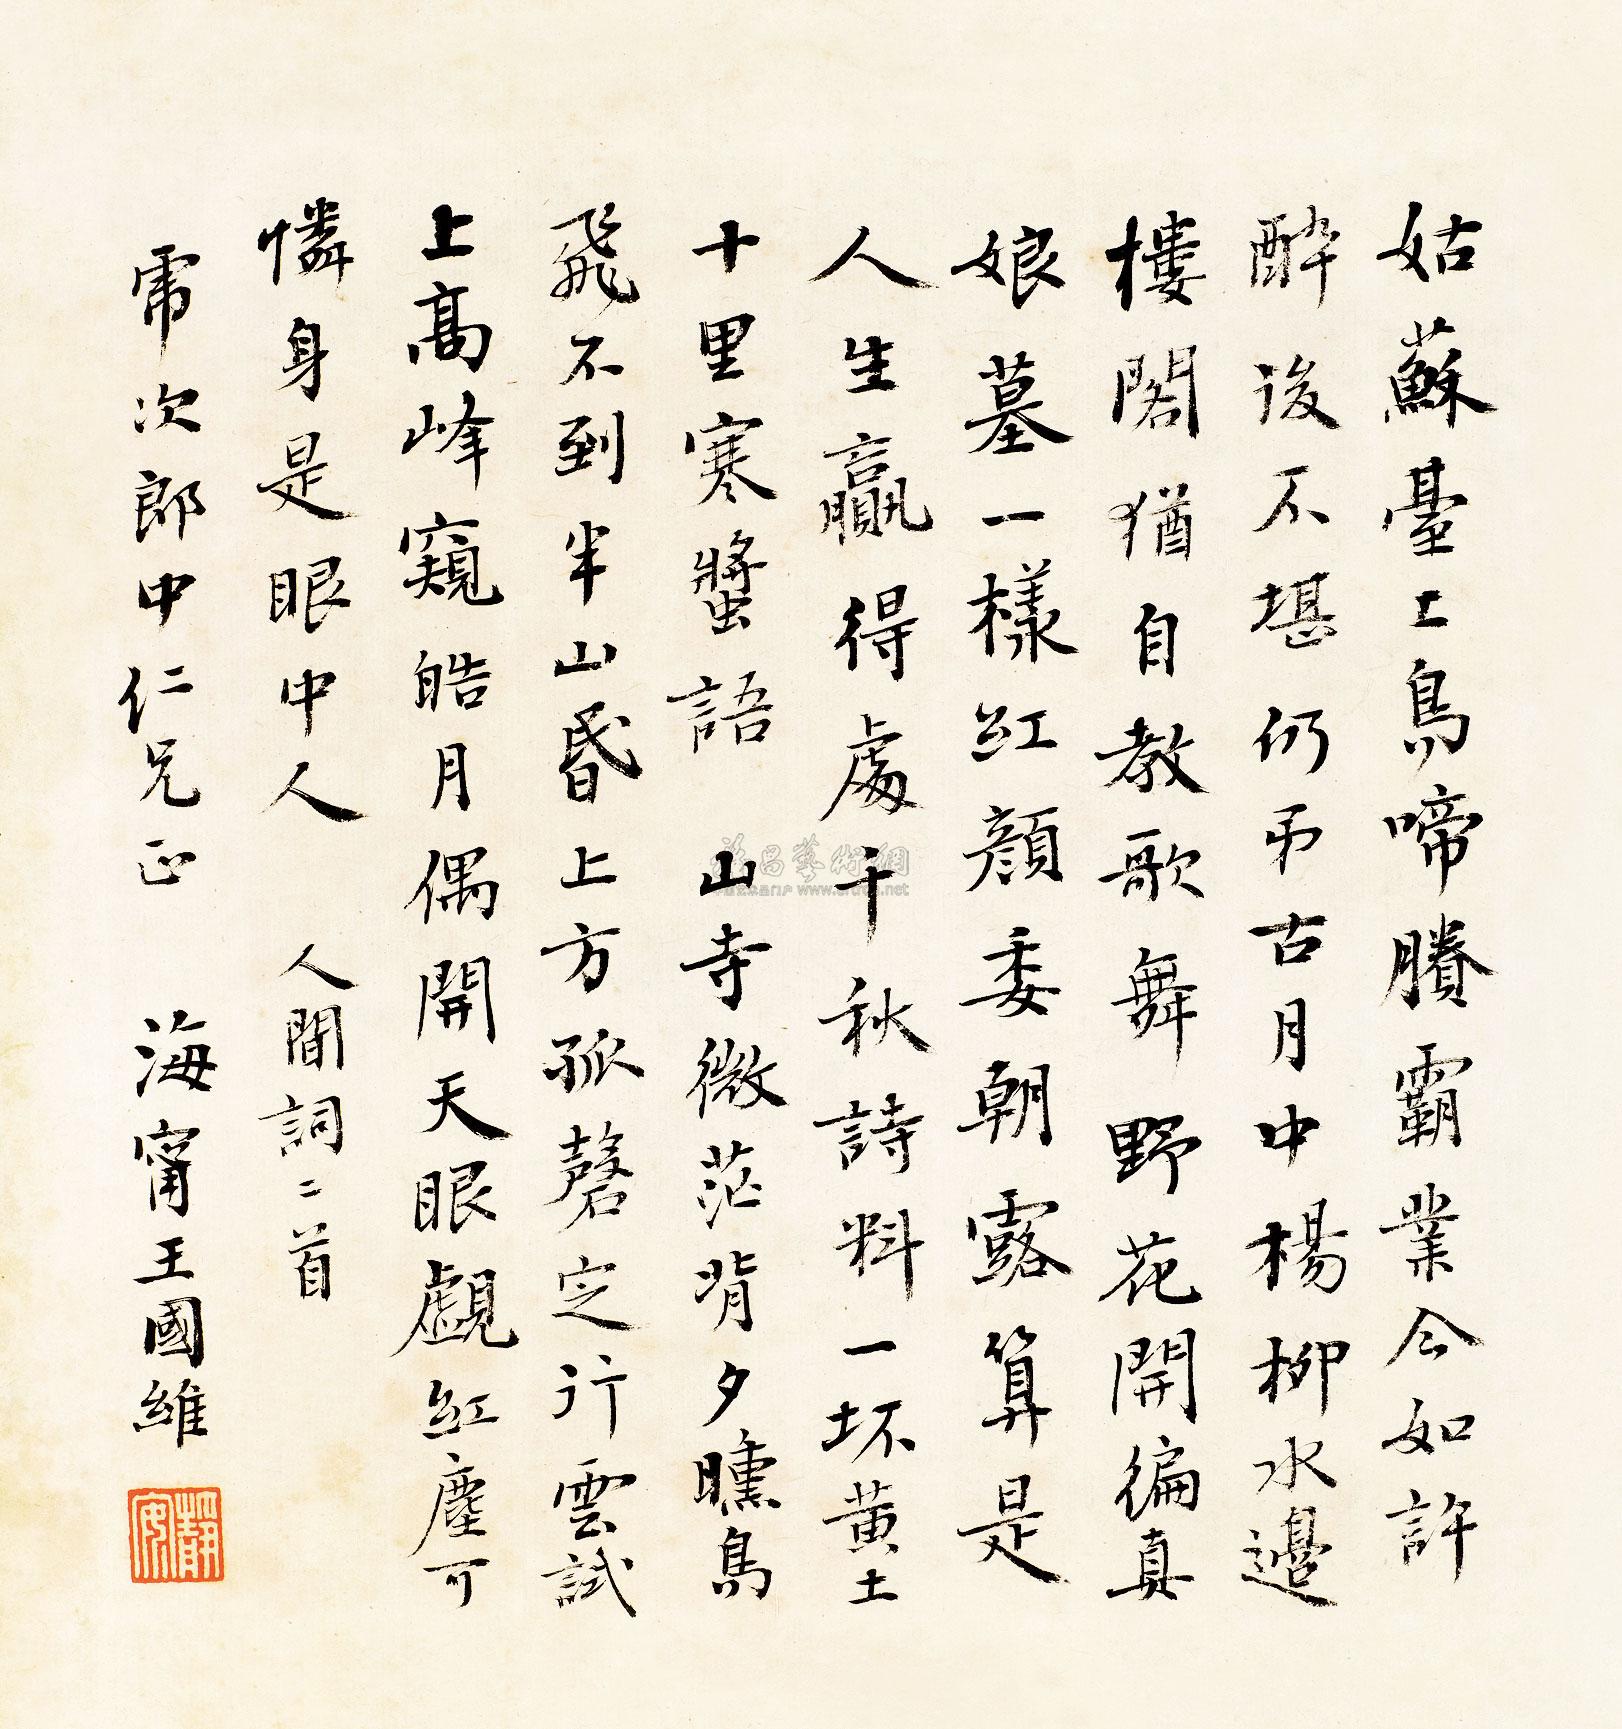 姑蘇臺上烏啼賸霸業今如許
醉後不堪仍弔古月中楊柳水邊
樓閣猶自教歌舞野花開徧真
娘墓一樣紅顏委朝露算是
人生贏得處千秋詩料一坏黃土
十里寒螿語 山寺微茫背夕曛鳥
飛不到半山昏上方孤磬定行雲試
上高峰窺皓月偶開天眼覷紅塵可
憐身是眼中人 人間詞二首
乕次郎中仁兄正 海甯王國維
靜安
雅昌藝術網